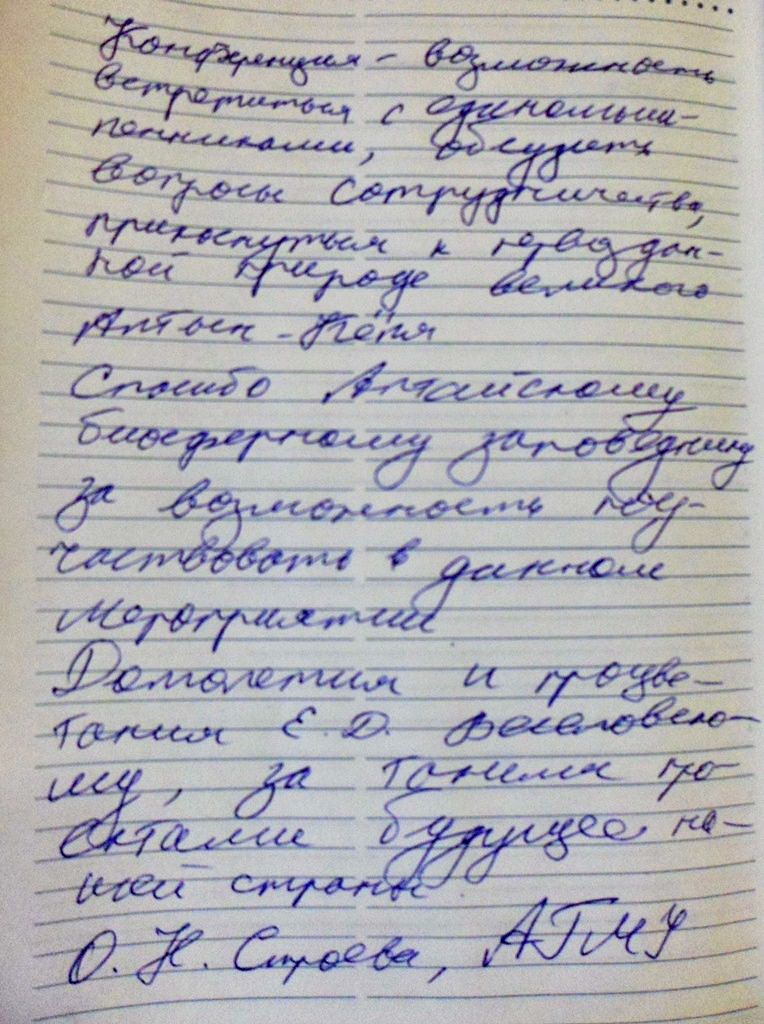 Конференция - возможность
встретиться с единомыш-
ленниками, обсудить
вопросы сотрудничества,
прикоснуться к первоздан-
ной природе великого
Алтын-Кёля
Спасибо Алтайскому
биосферному заповеднику
за возможность поу-
частвовать в данном
мероприятии
Долголетия и процве-
тания Е.Д. Веселовско-
му, за такими про-
ектами будущее на-
шей страны
О.Н. Строева, АГМУ